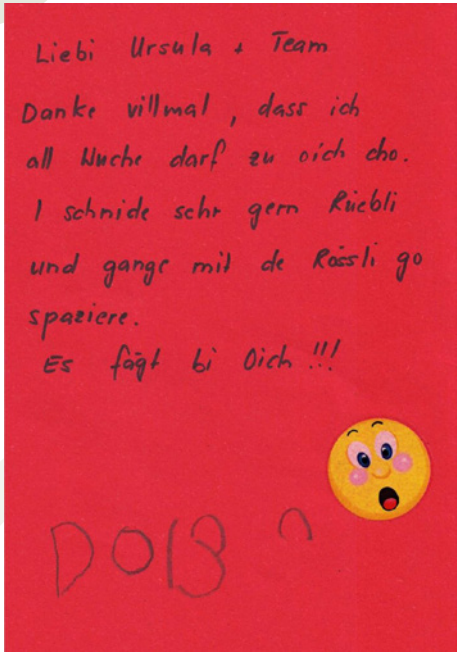 Liebi Ursula + Team
Danke villmal, dass ich
all Wuche darf zu oich cho.
I schnide sehr gern Rüebli
und gange mit de Rössli go
spaziere.
Es fägt bi Oich !!!